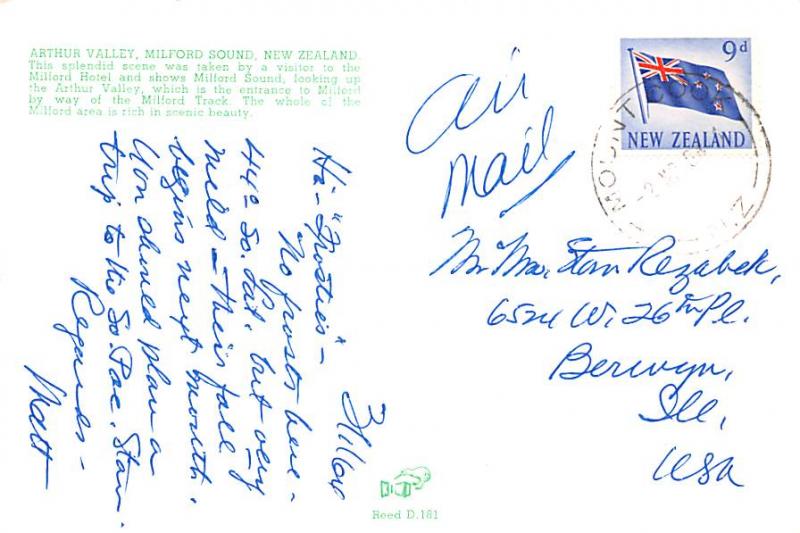 ARTHUR VALLEY, MILFORD SOUND, NEW ZEALAND.
This splendid scene was taken by a visitor to the
Milford Hotel and shows Milford Sound, looking up
the Arthur Valley, which is the entrance to Milford
by way of the Milford Track. The whole of the
Milford area is rich in scenic beauty.
3/1/60
Hi- "Frosties" -
No frosts here -
44° So. Lat. but very
mild - Their fall
begins next month.
You should plan a
trip to the So. Pac. Stan.
Regards -
Matt
Reed D.181
9d
NEW ZEALAND
MOUNT COOK
N.Z.
air
mail
Mr Mrs. Stan Rezabek,
6524 W. 26th Pl.
Berwyn,
Ill,
USA